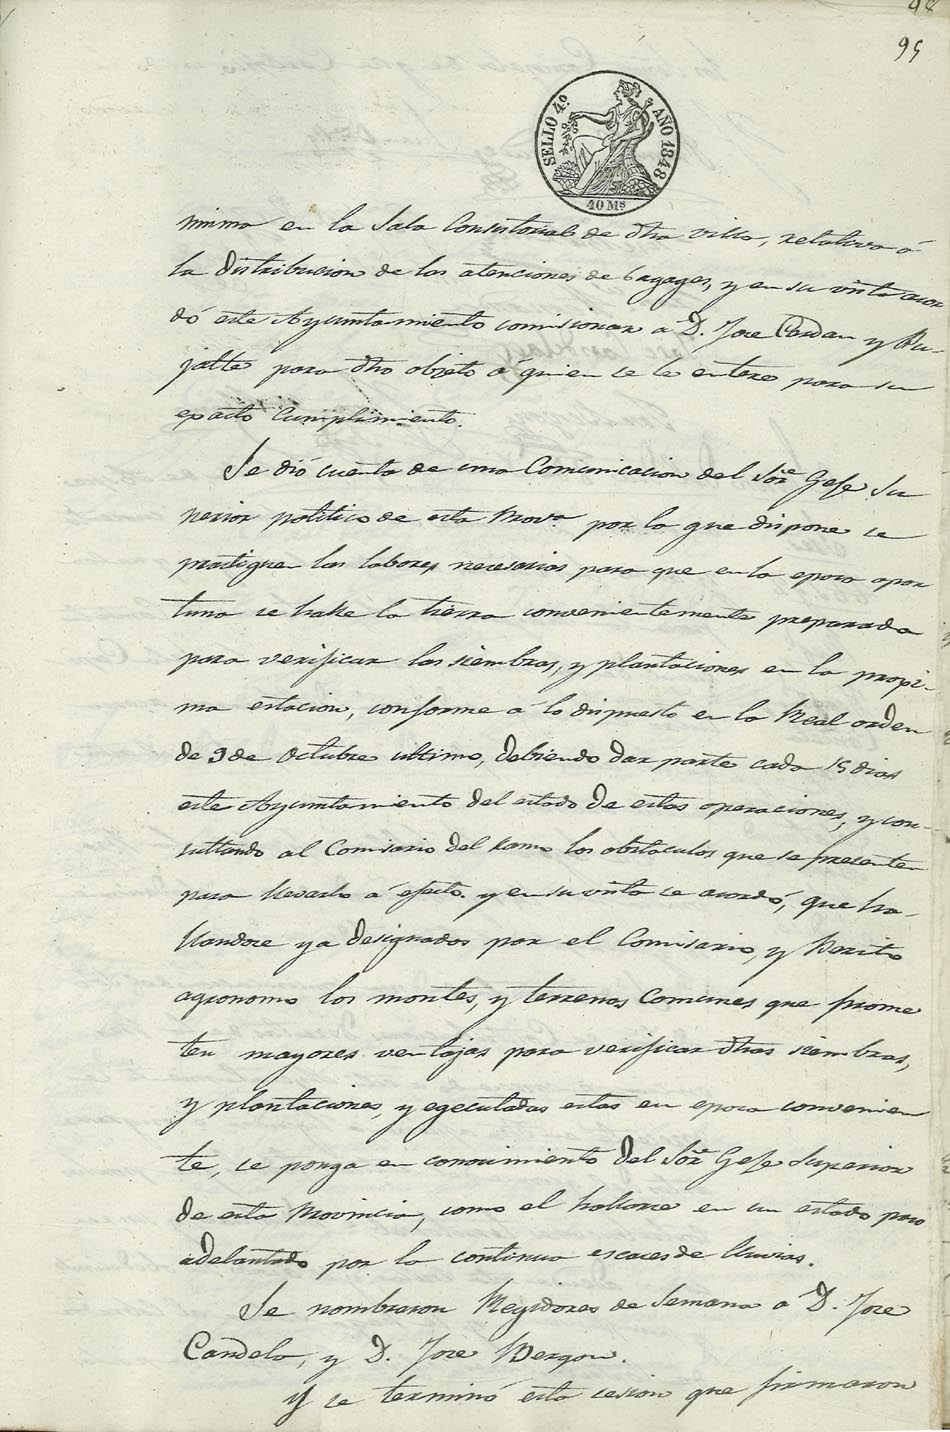 98
95
SELLO 4º AÑO 1848
40 Mˢ
mismo en la Sala Consistorial de dha villa, relativo á
la distribucion de las atenciones de bagages, y en su vista acor
dó este Ayuntamiento comisionar a D. Jose Cerdan y Ru-
jalte para dho objeto á quien se le entere para su
exacto cumplimiento.
Se dió cuenta de una Comunicacion del Sor. Gefe Su
perior politico de esta Provª. por la que dispone se
practiquen las labores necesarias para que en la epoca opor
tuna se halle la tierra convenientemente preparada
para verificar las siembras, y plantaciones en la proxi-
ma estacion, conforme á lo dispuesto en la Real orden
de 9 de Octubre ultimo, debiendo dar parte cada 15 dias
este Ayuntamiento del estado de estas operaciones, y con-
sultando al Comisario del ramo los obstaculos que se presenten
para llevarlo a efecto. y en su vista se acordó, que ha-
llandose ya designados por el Comisario, y Perito
agronomo los montes, y terrenos Comunes que prome
ten mayores ventajas para verificar dhas siembras,
y plantaciones, y egecutadas estas en epoca convenien
te, se ponga en conocimiento del Sor. Gefe Superior
de esta Provincia, como el hallarse en un estado poco
adelantado por la continua escaces de lluvias.
Se nombraron Regidores de Semana a D. Jose
Candela, y D. Jose
Y se terminó esta sesion que firmaron